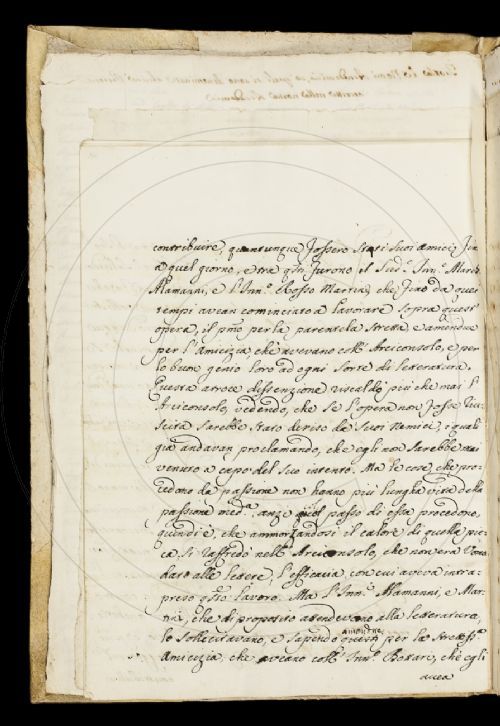 contribuire, quantunque fossero stati suoi amici fin
a quel giorno, e tra q.ti furono il Sud.o Inn.o March.
Alamanni, e l'Inn.o Rosso Martini, che fino da quei
tempi avean cominciato a lavorare sopra quest'
opera, il p.mo per la parentela stretta, e amendue
per l'Amicizia, che avevano coll' Arciconsolo, e per
lo buon genio loro ad ogni sorte di letteratura.
Questa atroce dissenzione riscaldò più che mai l'
Arciconsolo, vedendo, che se l'opera non fosse riu-
scita sarebbe stato deriso da' suoi Nemici, i quali
già andavan proclamando, che egli non sarebbe mai
venuto a capo del suo intento. Ma le cose, che pro-
cedono da passione non hanno più lunga vita della
passione med.a, anzi qual passo di essa procedono
quindi è, che ammorzandosi il calore di questa pic-
ca, si raffreddò nell' Arciconsolo, che non era
dato alle lettere, l'efficacia, con cui aveva intra-
preso q.sto lavoro. Ma l'Inn.o Alamanni, e Mar-
tini, che di proposito attendevano alla letteratura,
lo sollecitavano, e sapendo amendue per la strettiss.a
Amicizia, che aveano coll' Inn.o Bottari, che egli
avea